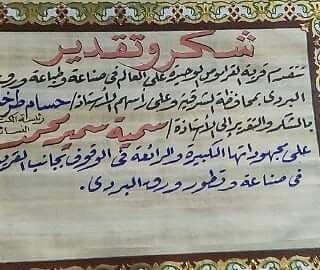 شكر وتقدير
تتقدم قرية القراموص الوحيدة على العالم فى صناعة وطباعة ورق
البردى بمحافظة الشرقية وعلى رأسهم الأستاذ/ حسام طرخا
بالشكر والتقدير إلى الأستاذة/ سمية سمير محمد
على مجهوداتها الكبيرة والرائعة فى الوقوف بجانب القرية
فى صناعة وتطور ورق البردى.